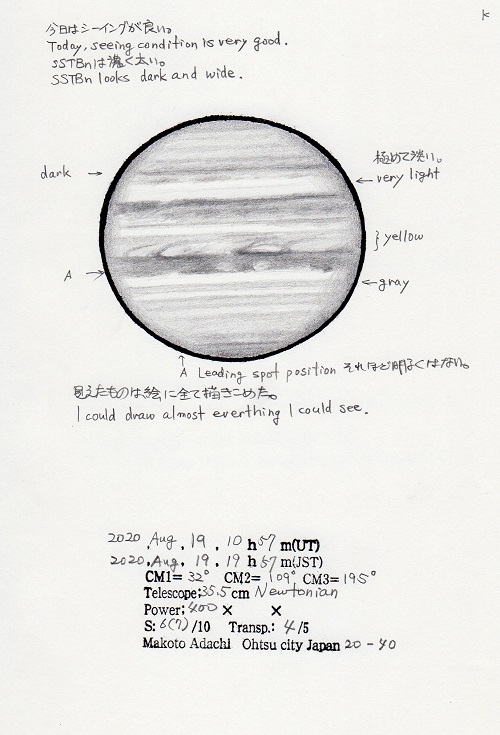 K
今日はシーイングが良い。
Today, seeing condition is very good.
SSTBnは濃く太い。
SSTBn looks dark and wide.
極めて淡い。
dark → ← very light
} yellow
A →
← gray
↑
A Leading spot position それほど明るくはない。
見えたものは絵に全て描きこめた。
I could draw almost everthing I could see.
2020, Aug, 19, 10 h 57 m(UT)
2020, Aug, 19, 19 h 57 m(JST)
CM1= 32° CM2= 109° CM3= 195°
Telescope; 35.5 cm Newtonian
Power; 400 × ×
S: 6(7) /10 Transp.: 4 /5
Makoto Adachi Ohtsu city Japan 20-40